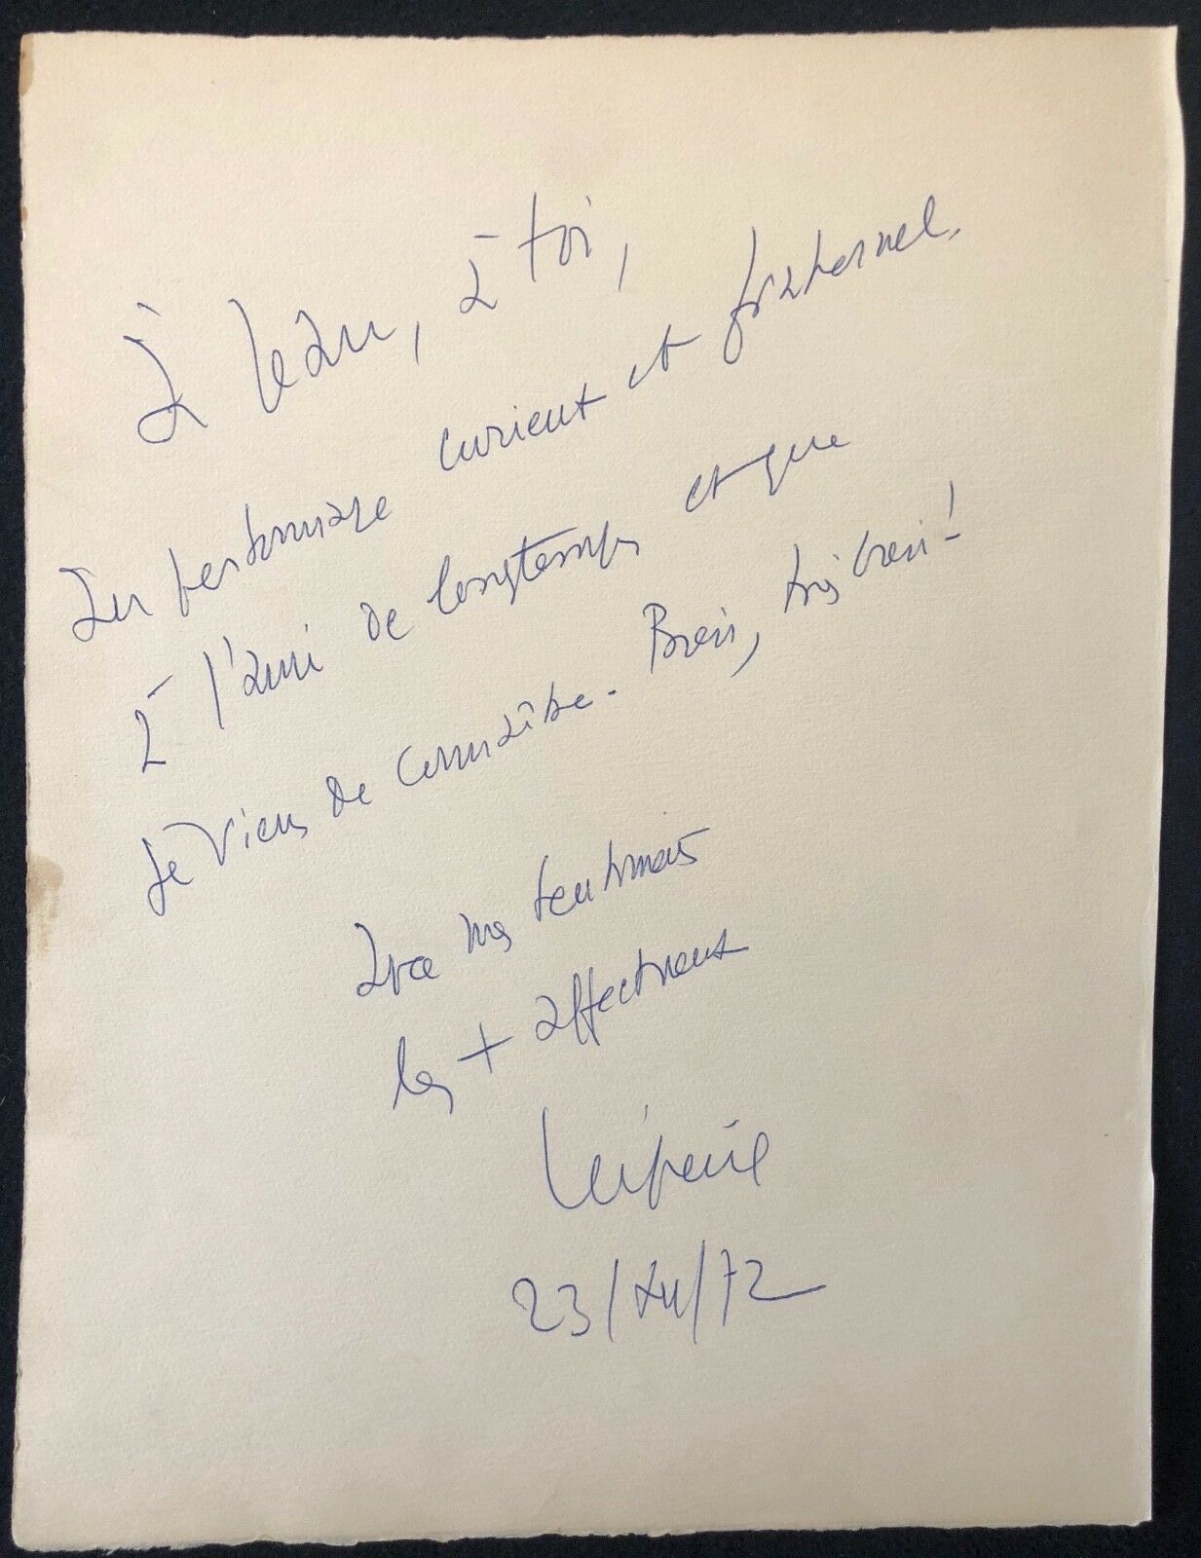 À Jean, à toi,
Au personnage curieux et fraternel,
à l'ami de longtemps et que
Je viens de connaître. Bien, très bien!
Avec mes sentiments
les + affectueux
23/ /72